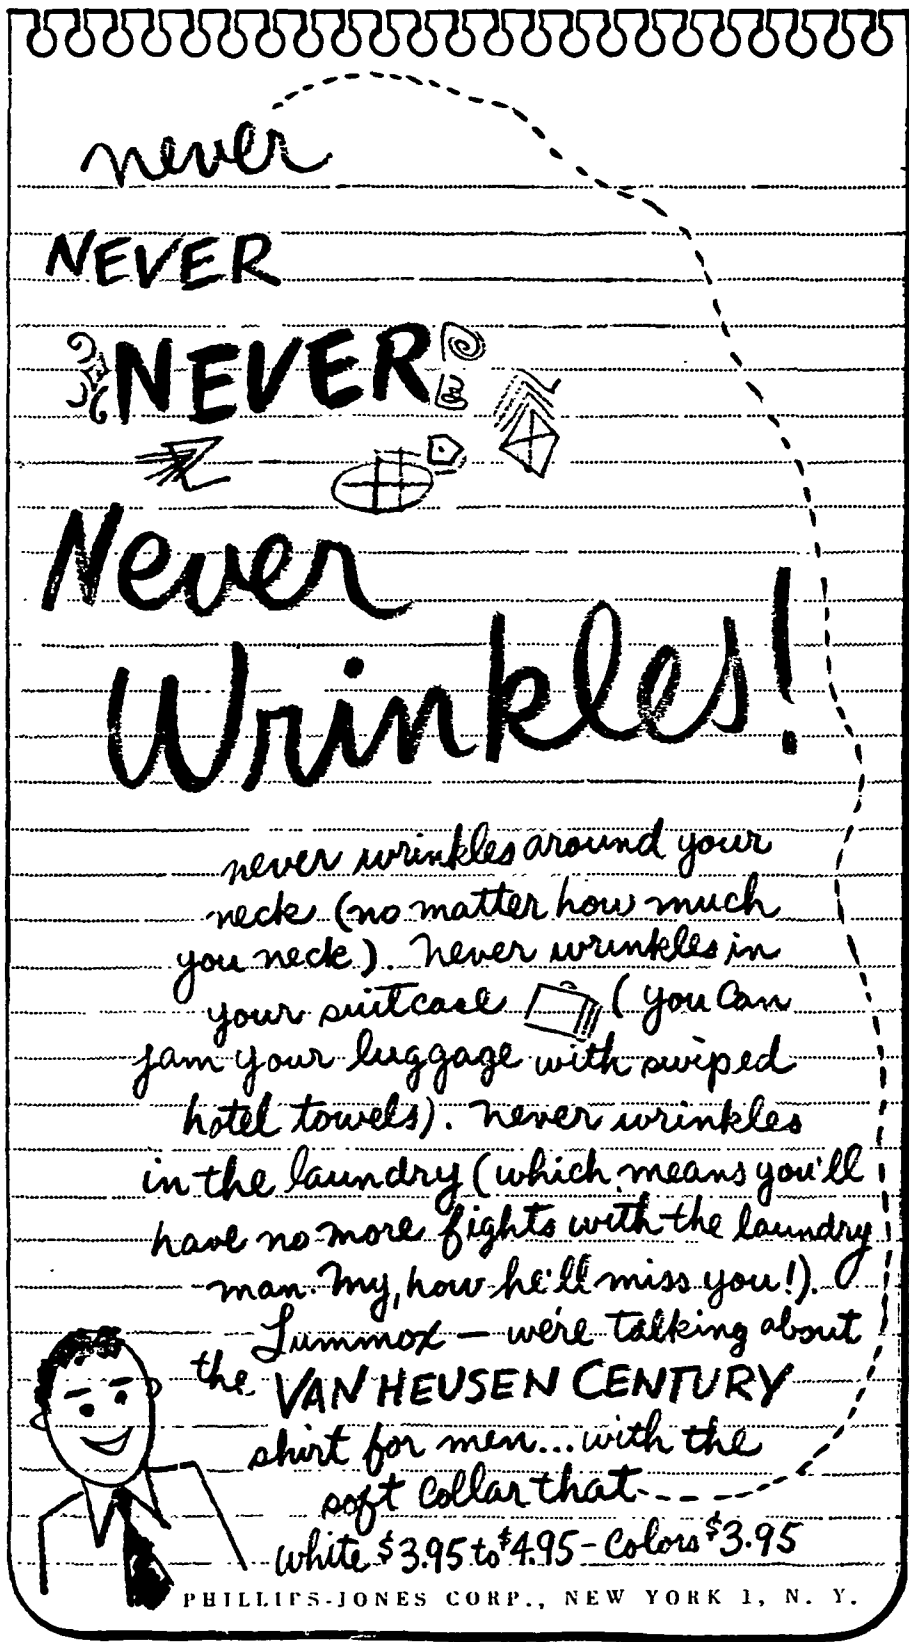 never
NEVER
NEVER
Never
Wrinkles!
never wrinkles around your
neck (no matter how much
you neck). Never wrinkles in
your suitcase (you can
jam your luggage with swiped
hotel towels). Never wrinkles
in the laundry (which means you'll
have no more fights with the laundry
man. My, how he'll miss you!).
Lummox — we're talking about
the VAN HEUSEN CENTURY
shirt for men...with the
soft collar that
white $3.95 to $4.95 - Colors $3.95
PHILLIPS-JONES CORP., NEW YORK 1, N. Y.